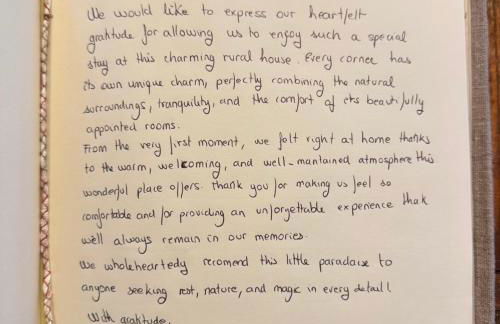 We would like to express our heartfelt
gratitude for allowing us to enjoy such a special
stay at this charming rural house. Every corner has
its own unique charm, perfectly combining the natural
surroundings, tranquility, and the comfort of its beautifully
appointed rooms.
From the very first moment, we felt right at home thanks
to the warm, welcoming, and well-mantained atmosphere this
wonderful place offers. Thank you for making us feel so
comfortable and for providing an unforgettable experience that
we'll always remain in our memories.
We wholeheartedy recomend this little paradaise to
anyone seeking rest, nature, and magic in every detail!
With gratitude,